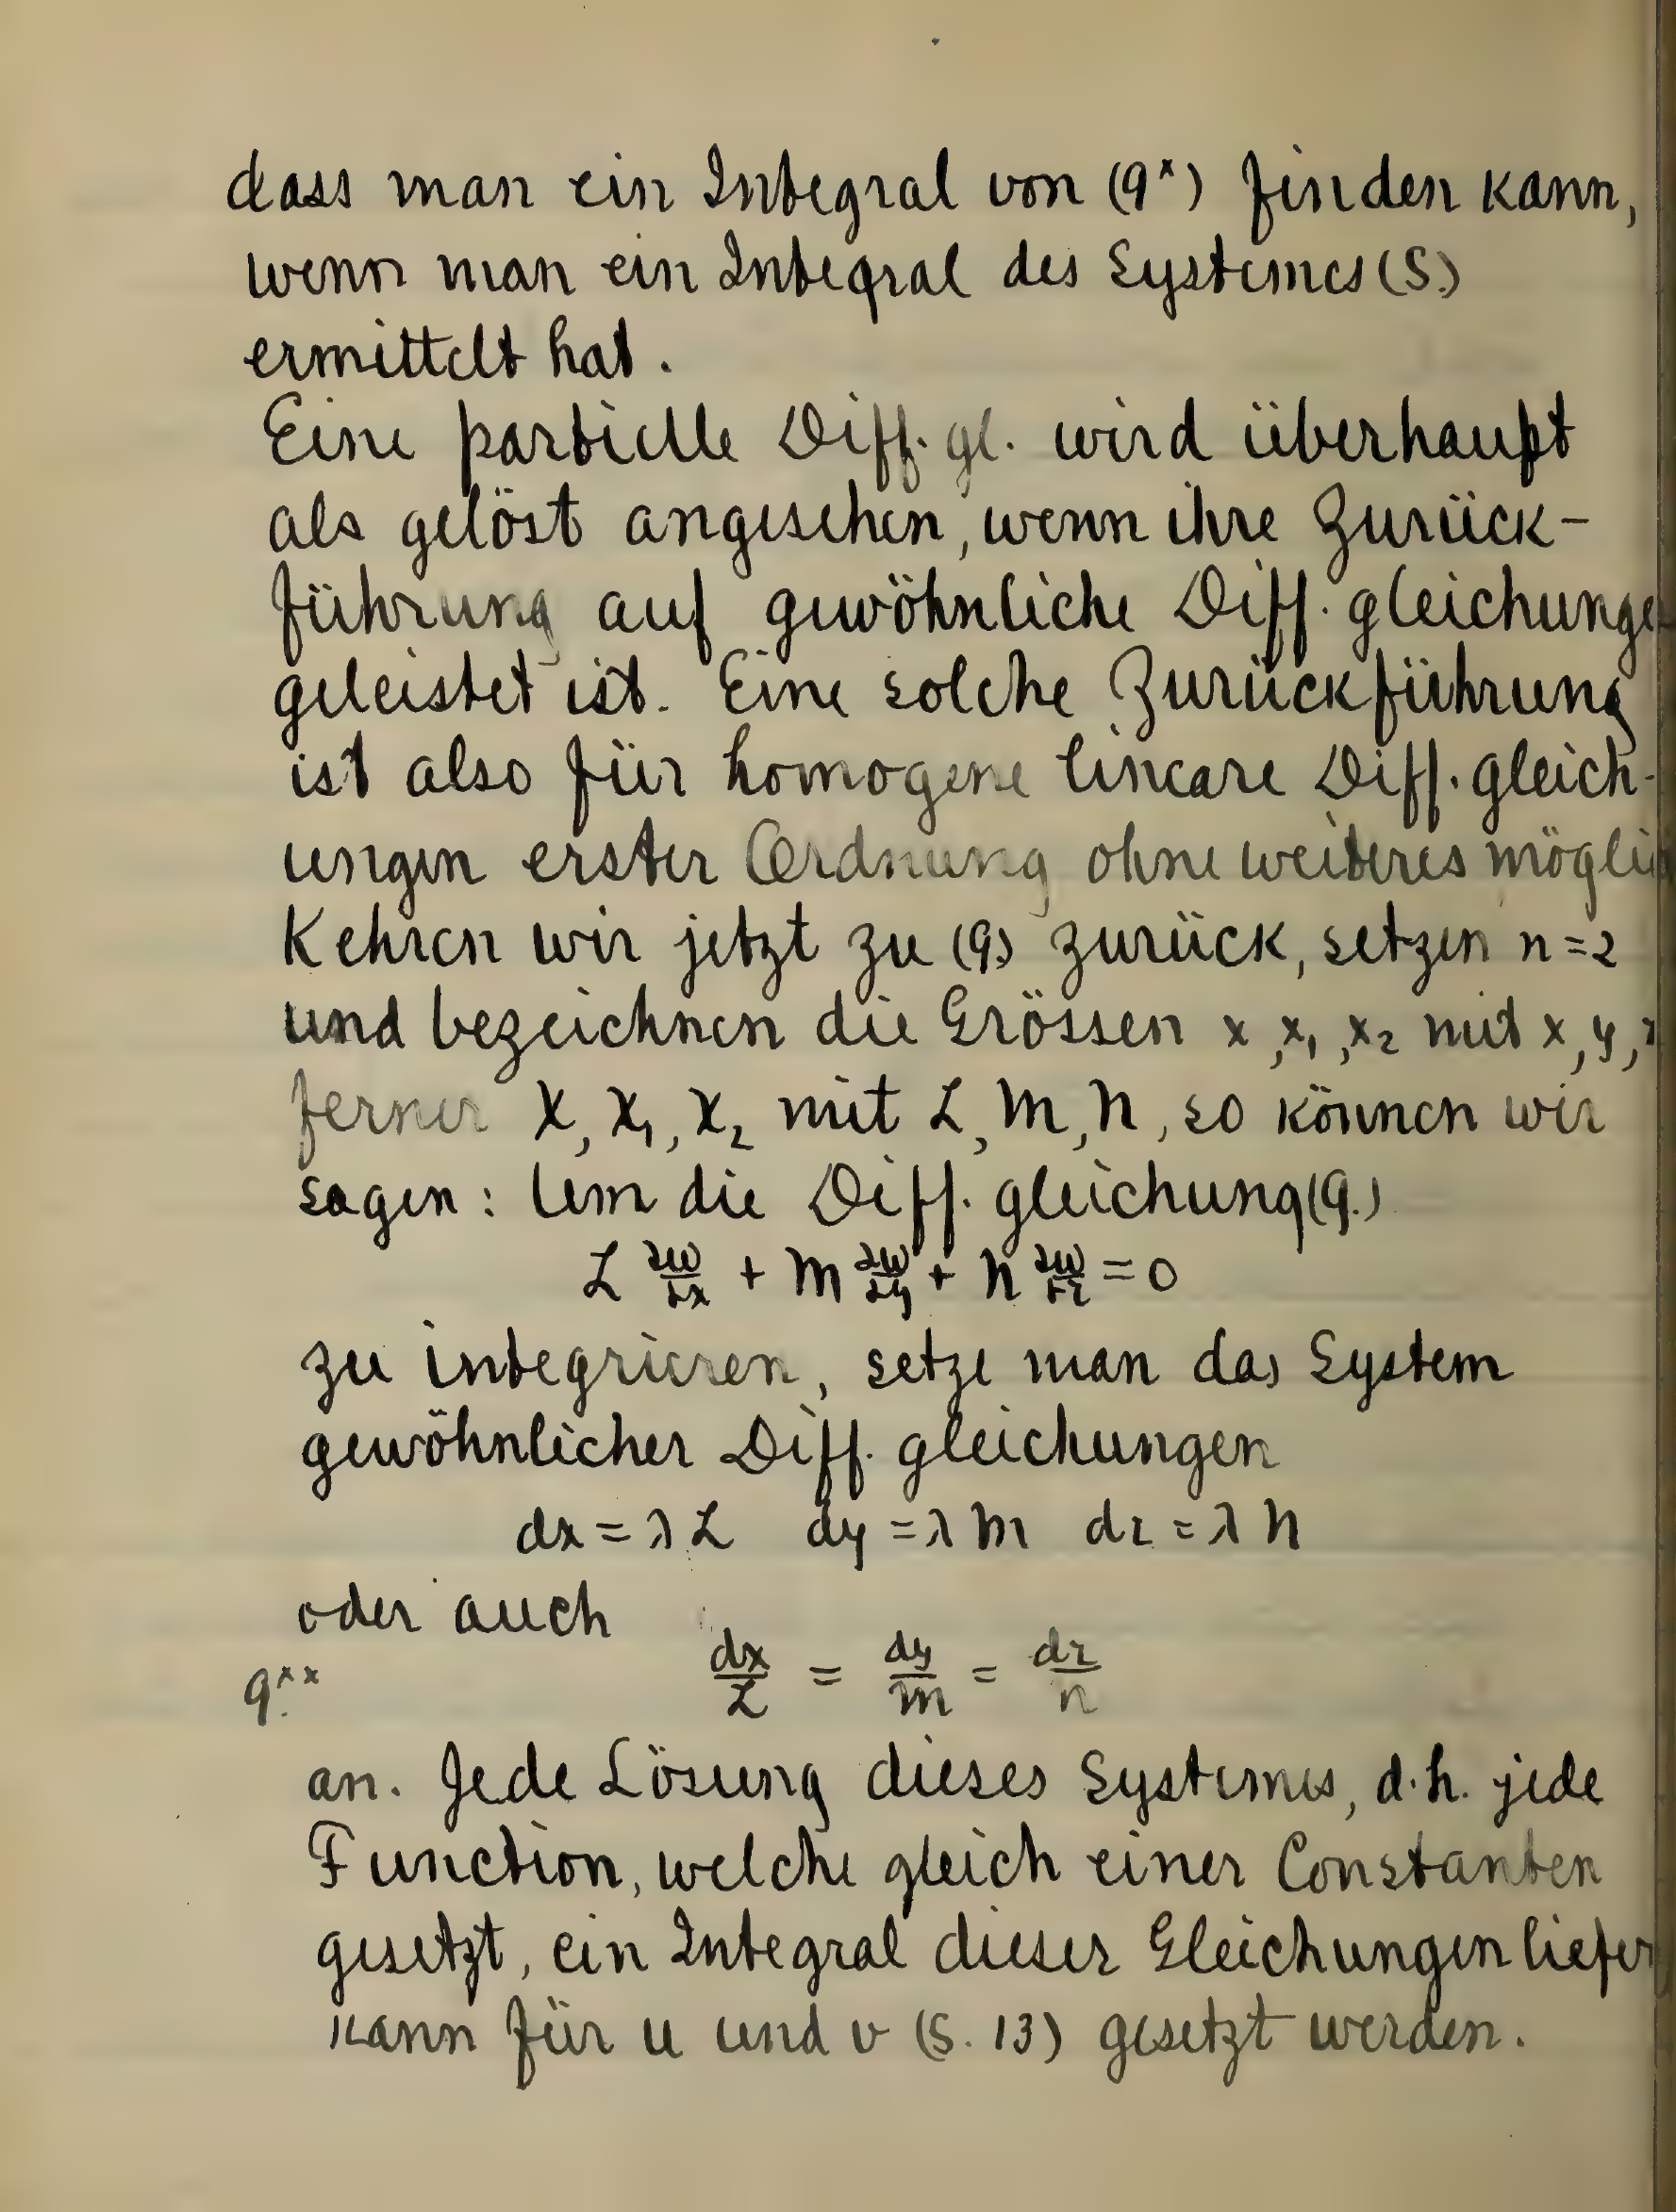 dass man ein Integral von (9ˣ) finden kann,
wenn man ein Integral des Systemes (S.)
ermittelt hat.
Eine partielle Diff. gl. wird überhaupt
als gelöst angesehen, wenn ihre Zurück-
führung auf gewöhnliche Diff. gleichunge
geleistet ist. Eine solche Zurückführung
ist also für homogene lineare Diff. gleich-
ungen erster Ordnung ohne weiteres möglic
Kehren wir jetzt zu (9.) zurück, setzen n = 2
und bezeichnen die Grössen x, x₁, x₂ mit x, y, z
ferner X, X₁, X₂ mit L, M, N, so können wir
sagen: Um die Diff. gleichung (9.)
L ∂w/∂x + M ∂w/∂y + N ∂w/∂z = 0
zu integrieren, setze man das System
gewöhnlicher Diff. gleichungen
dx = λ L dy = λ M dz = λ N
oder auch
9.ˣˣ dx/L = dy/M = dz/N
an. Jede Lösung dieses Systemes, d.h. jede
Function, welche gleich einer Constanten
gesetzt, ein Integral dieser Gleichungen liefer
kann für u und v (S. 13) gesetzt werden.